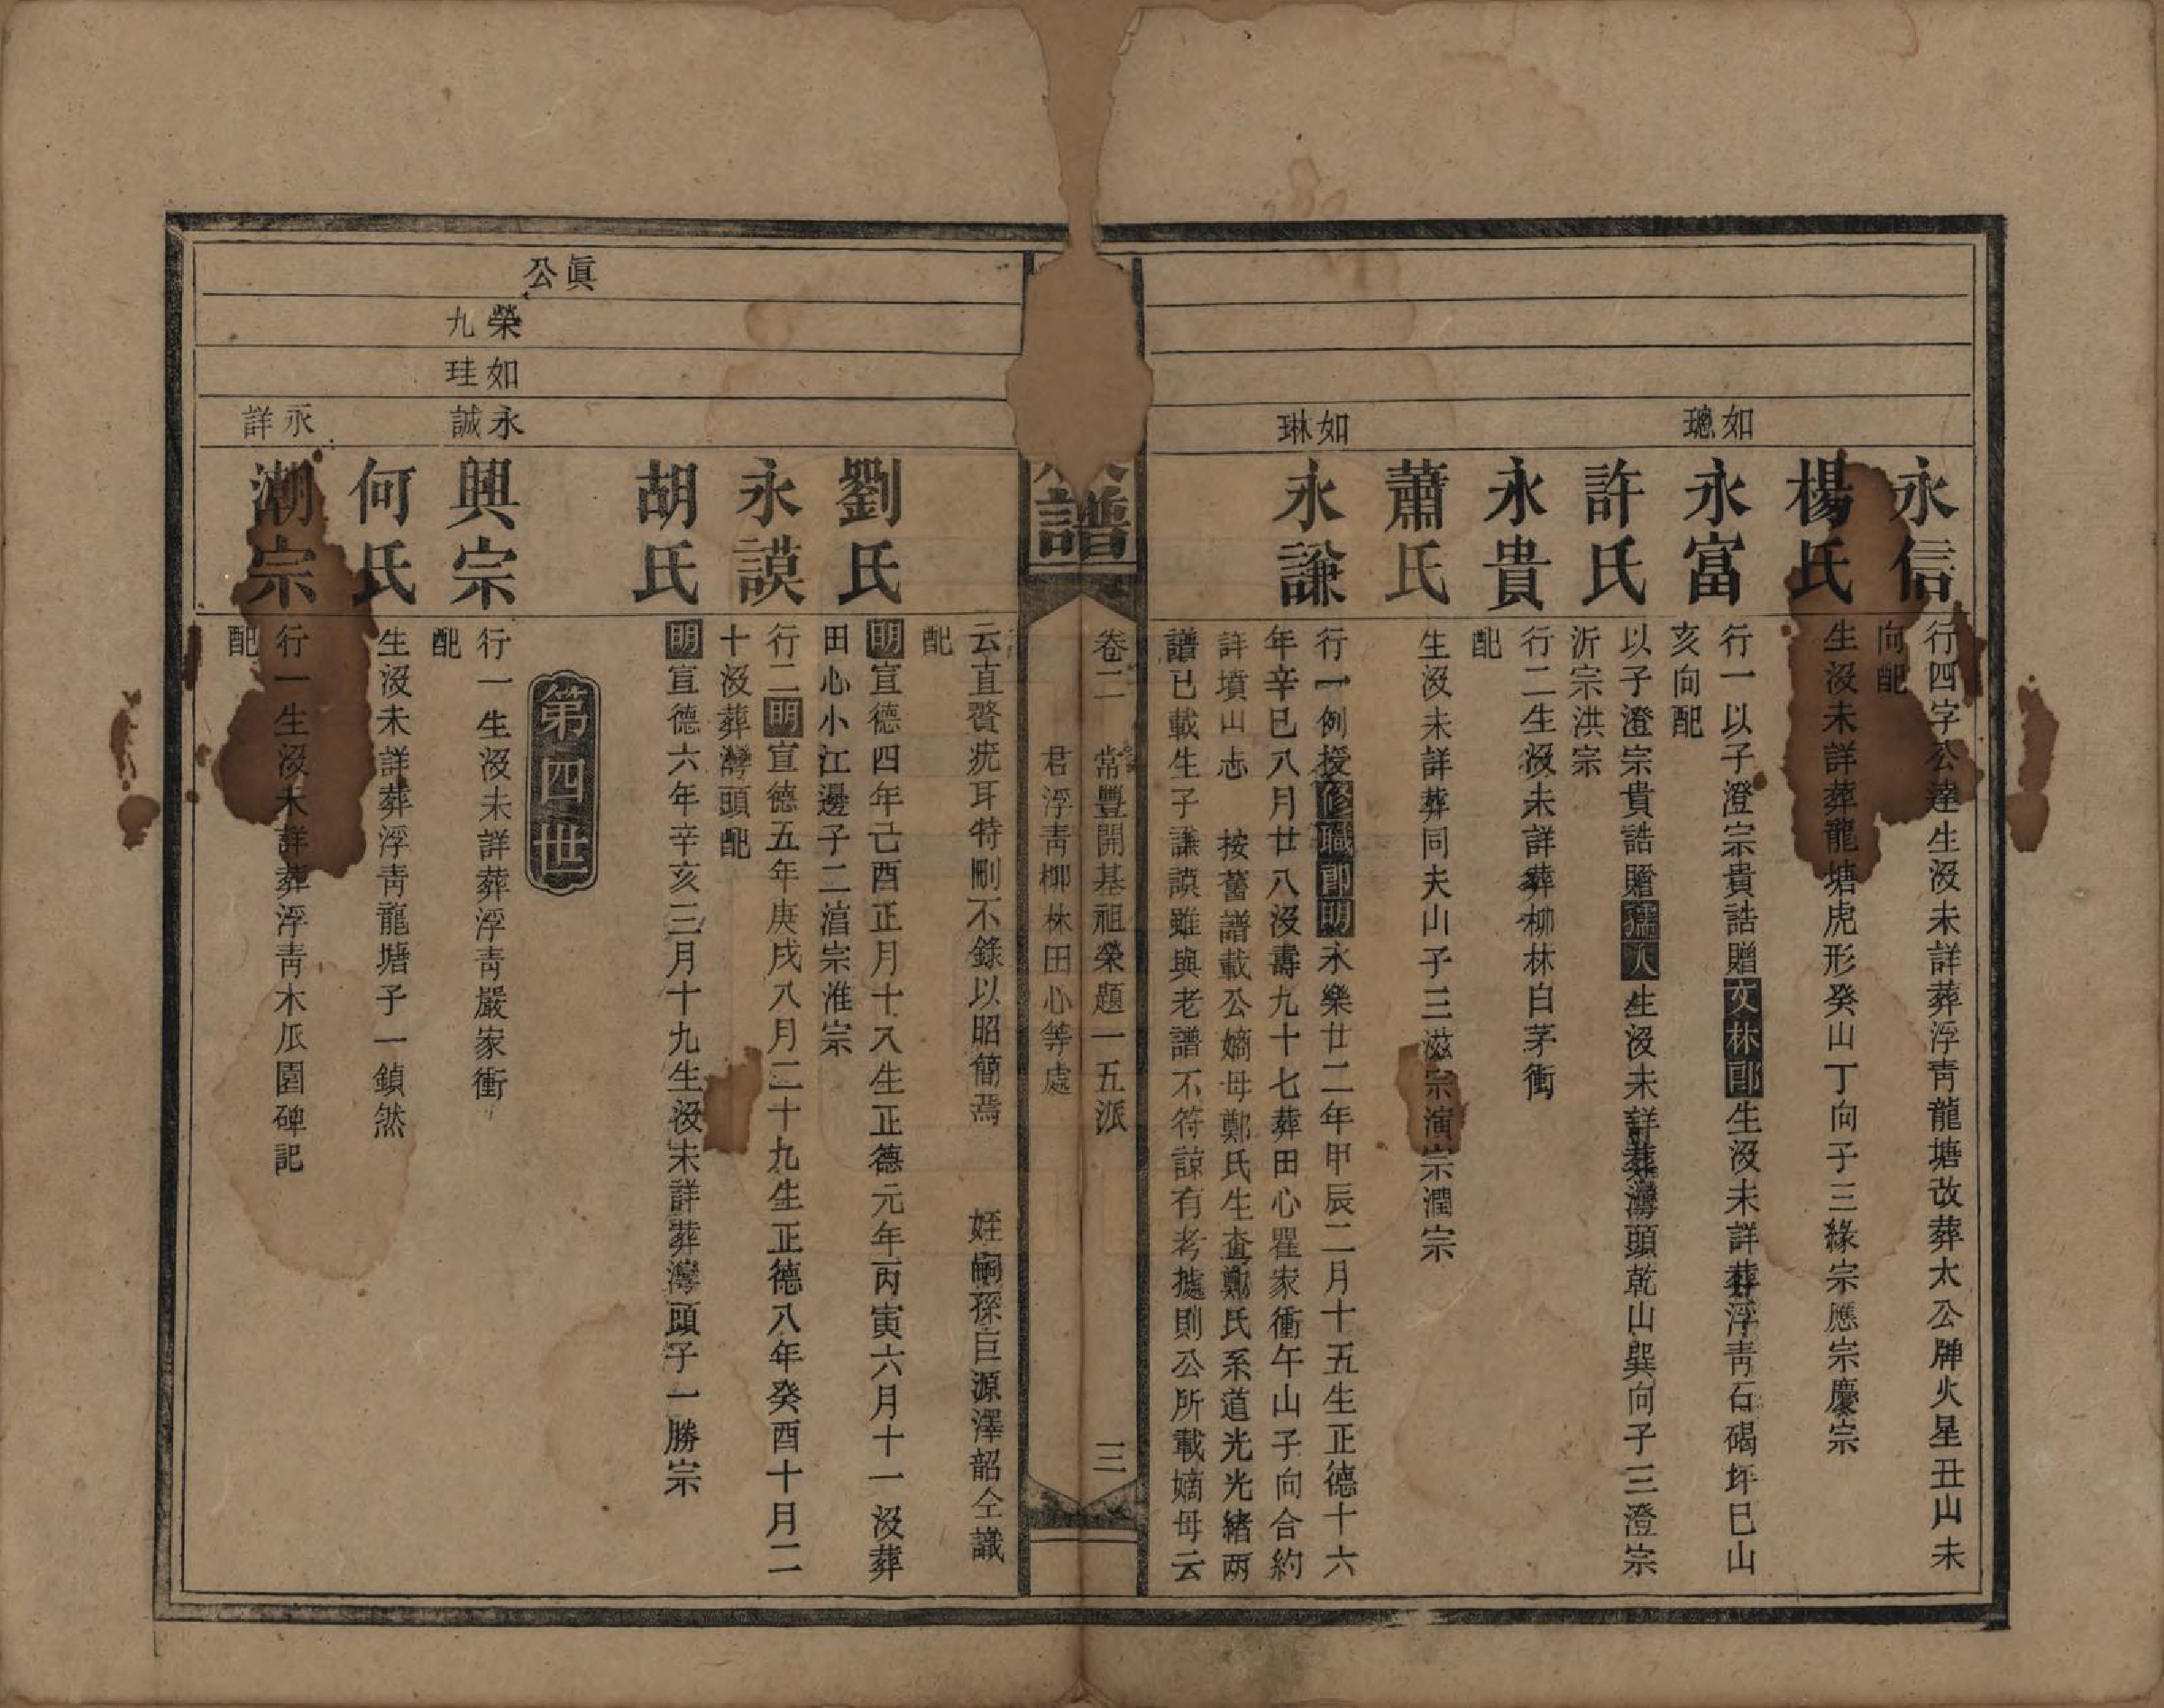 永信
行四字公達生沒未詳葬浮靑龍塘改葬太公牌火星丑山未
向配
楊氏
生沒未詳葬龍塘虎形癸山丁向子三緣宗應宗慶宗
如璁
永富
行一以子澄宗貴誥贈文林郎生沒未詳葬浮靑石碣坪巳山
亥向配
許氏
以子澄宗貴誥贈孺人生沒未詳葬灣頭乾山巽向子三澄宗
沂宗洪宗
永貴
行二生沒未詳葬柳林白茅衝
配
蕭氏
生沒未詳葬同夫山子三滋宗演宗潤宗
如琳
永謙
行一例授修職郎明永樂廿二年甲辰二月十五生正德十六
年辛巳八月廿八沒壽九十七葬田心瞿家衝午山子向合約
詳墳山志 按舊譜載公嫡母鄭氏生查鄭氏系道光光緒兩
譜已載生子謙謨雖與老譜不符諒有考據則公所載嫡母云
譜
卷二 常豐開基祖榮題一五派 三
君浮靑柳林田心等處
云直贅疣耳特刪不錄以昭簡焉 姪嗣孫巨源澤韶仝識
配
劉氏
明宣德四年己酉正月十八生正德元年丙寅六月十一沒葬
田心小江邊子二涫宗淮宗
永謨
行二明宣德五年庚戌八月二十九生正德八年癸酉十月二
十沒葬灣頭配
胡氏
明宣德六年辛亥三月十九生沒未詳葬灣頭子一勝宗
第四世
眞公
榮九
如珪
永誠
興宗
行一生沒未詳葬浮靑嚴家衝
配
何氏
生沒未詳葬浮靑龍塘子一鎮然
永詳
潮宗
行一生沒未詳葬浮靑木瓜園碑記
配